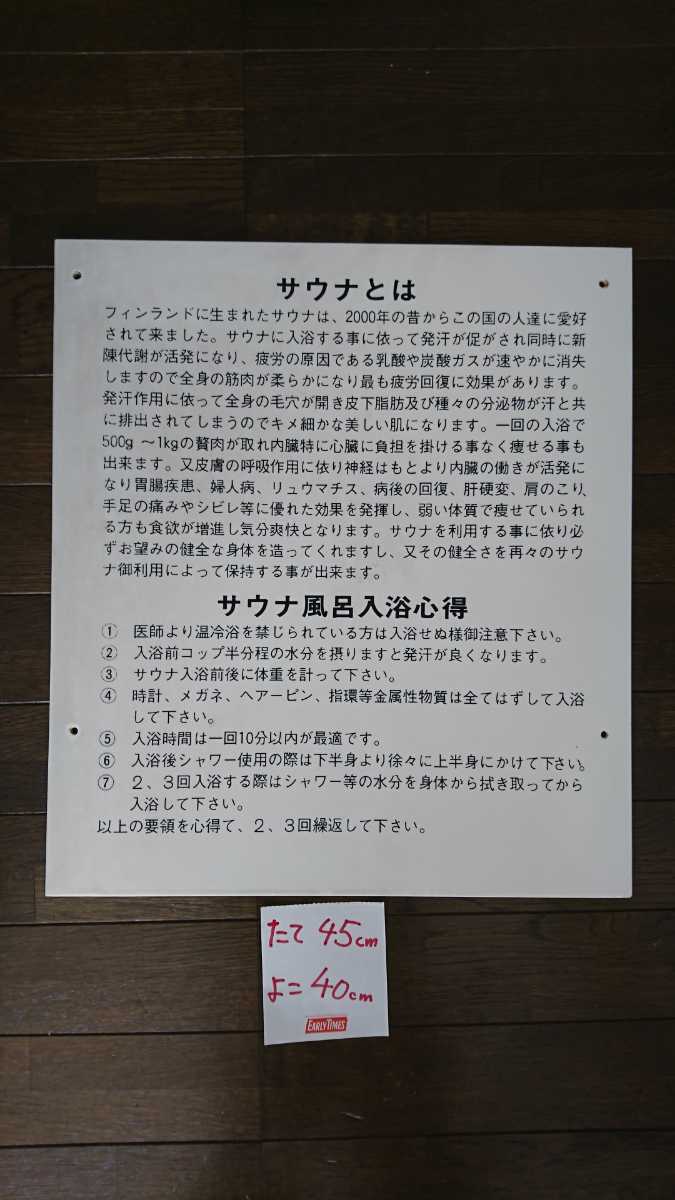 サウナとは
フィンランドに生まれたサウナは、2000年の昔からこの国の人達に愛好
されて来ました。サウナに入浴する事に依って発汗が促がされ同時に新
陳代謝が活発になり、疲労の原因である乳酸や炭酸ガスが速やかに消失
しますので全身の筋肉が柔らかになり最も疲労回復に効果があります。
発汗作用に依って全身の毛穴が開き皮下脂肪及び種々の分泌物が汗と共
に排出されてしまうのでキメ細かな美しい肌になります。一回の入浴で
500g 〜1kgの贅肉が取れ内臓特に心臓に負担を掛ける事なく痩せる事も
出来ます。又皮膚の呼吸作用に依り神経はもとより内臓の働きが活発に
なり胃腸疾患、婦人病、リュウマチス、病後の回復、肝硬変、肩のこり、
手足の痛みやシビレ等に優れた効果を発揮し、弱い体質で痩せていられ
る方も食欲が増進し気分爽快となります。サウナを利用する事に依り必
ずお望みの健全な身体を造ってくれますし、又その健全さを再々のサウ
ナ御利用によって保持する事が出来ます。
サウナ風呂入浴心得
① 医師より温冷浴を禁じられている方は入浴せぬ様御注意下さい。
② 入浴前コップ半分程の水分を摂りますと発汗が良くなります。
③ サウナ入浴前後に体重を計って下さい。
④ 時計、メガネ、ヘアーピン、指環等金属性物質は全てはずして入浴
して下さい。
⑤ 入浴時間は一回10分以内が最適です。
⑥ 入浴後シャワー使用の際は下半身より徐々に上半身にかけて下さい。
⑦ 2、3回入浴する際はシャワー等の水分を身体から拭き取ってから
入浴して下さい。
以上の要領を心得て、2、3回繰返して下さい。
たて 45cm
よこ 40cm
EARLY TIMES